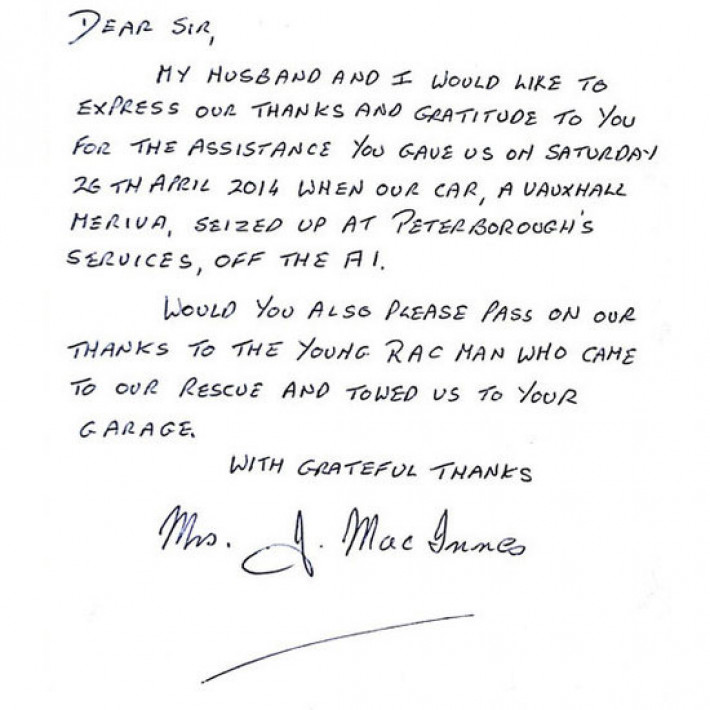 DEAR SIR,
MY HUSBAND AND I WOULD LIKE TO
EXPRESS OUR THANKS AND GRATITUDE TO YOU
FOR THE ASSISTANCE YOU GAVE US ON SATURDAY
26TH APRIL 2014 WHEN OUR CAR, A VAUXHALL
MERIVA, SEIZED UP AT PETERBOROUGH'S
SERVICES, OFF THE A1.
WOULD YOU ALSO PLEASE PASS ON OUR
THANKS TO THE YOUNG RAC MAN WHO CAME
TO OUR RESCUE AND TOWED US TO YOUR
GARAGE.
WITH GRATEFUL THANKS
Mrs. J. Mac Innes